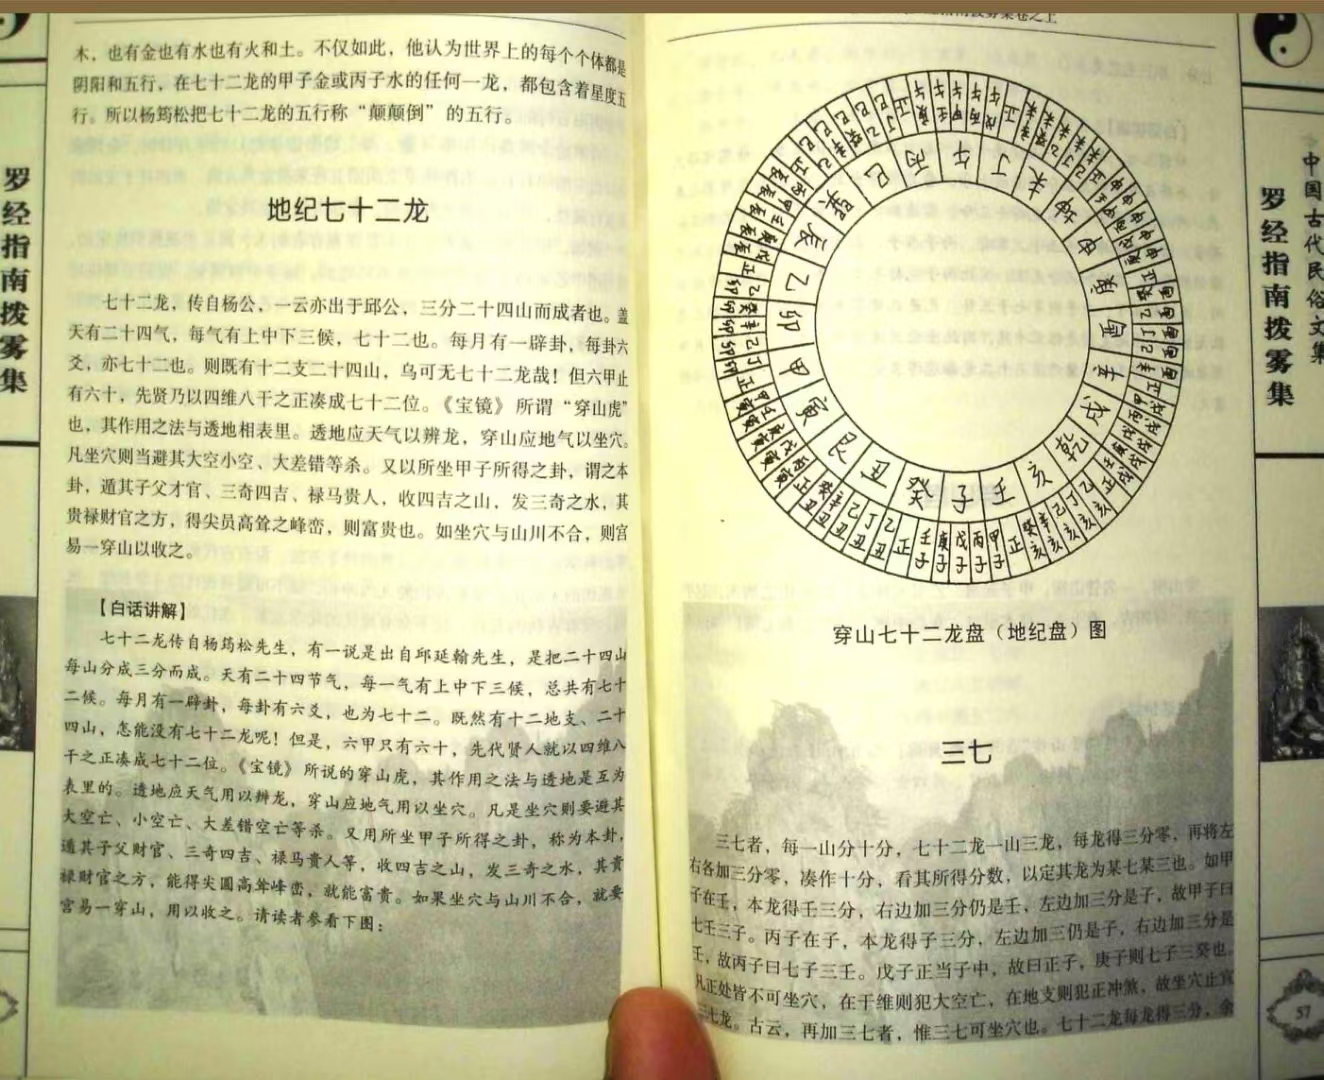 木，也有金也有水也有火和土。不仅如此，他认为世界上的每个个体都是
阴阳和五行，在七十二龙的甲子金或丙子水的任何一龙，都包含着星度五
行。所以杨筠松把七十二龙的五行称“颠颠倒”的五行。
地纪七十二龙
七十二龙，传自杨公，一云亦出于邱公，三分二十四山而成者也。盖
天有二十四气，每气有上中下三候，七十二也。每月有一辟卦，每卦六
爻，亦七十二也。则既有十二支二十四山，乌可无七十二龙哉！但六甲止
有六十，先贤乃以四维八干之正凑成七十二位。《宝镜》所谓“穿山虎”
也，其作用之法与透地相表里。透地应天气以辨龙，穿山应地气以坐穴。
凡坐穴则当避其大空小空、大差错等杀。又以所坐甲子所得之卦，谓之本
卦，遁其子父才官、三奇四吉、禄马贵人，收四吉之山，发三奇之水，其
贵禄财官之方，得尖员高耸之峰峦，则富贵也。如坐穴与山川不合，则宫
易一穿山以收之。
【白话讲解】
七十二龙传自杨筠松先生，有一说是出自邱延翰先生，是把二十四山
每山分成三分而成。天有二十四节气，每一气有上中下三候，总共有七十
二候。每月有一辟卦，每卦有六爻，也为七十二。既然有十二地支、二十
四山，怎能没有七十二龙呢！但是，六甲只有六十，先代贤人就以四维八
干之正凑成七十二位。《宝镜》所说的穿山虎，其作用之法与透地是互为
表里的。透地应天气用以辨龙，穿山应地气用以坐穴。凡是坐穴则要避其
大空亡、小空亡、大差错空亡等杀。又用所坐甲子所得之卦，称为本卦，
遁其子父财官、三奇四吉、禄马贵人等，收四吉之山，发三奇之水，其贵
禄财官之方，能得尖圆高耸峰峦，就能富贵。如果坐穴与山川不合，就要
宫易一穿山，用以收之。请读者参看下图：
罗经指南拨雾集
午
丁
未
坤
申
庚
酉
辛
戌
乾
亥
壬
子
癸
丑
艮
寅
甲
卯
乙
辰
巽
巳
丙
甲子
丙子
戊子
庚子
壬子
正
乙丑
丁丑
己丑
辛丑
癸丑
正
穿山七十二龙盘（地纪盘）图
三七
三七者，每一山分十分，七十二龙一山三龙，每龙得三分零，再将左
右各加三分零，凑作十分，看其所得分数，以定其龙为某七某三也。如甲
子在壬，本龙得壬三分，右边加三分仍是壬，左边加三分是子，故甲子曰
七壬三子。丙子在子，本龙得子三分，左边加三仍是子，右边加三分是
壬，故丙子曰七子三壬。戊子正当子中，故曰正子，庚子则七子三癸也。
凡正处皆不可坐穴，在干维则犯大空亡，在地支则犯正冲煞，故坐穴止宜
三七龙。古云，再加三七者，惟三七可坐穴也。七十二龙每龙得三分，余
中国古代民俗文集
罗经指南拨雾集
57